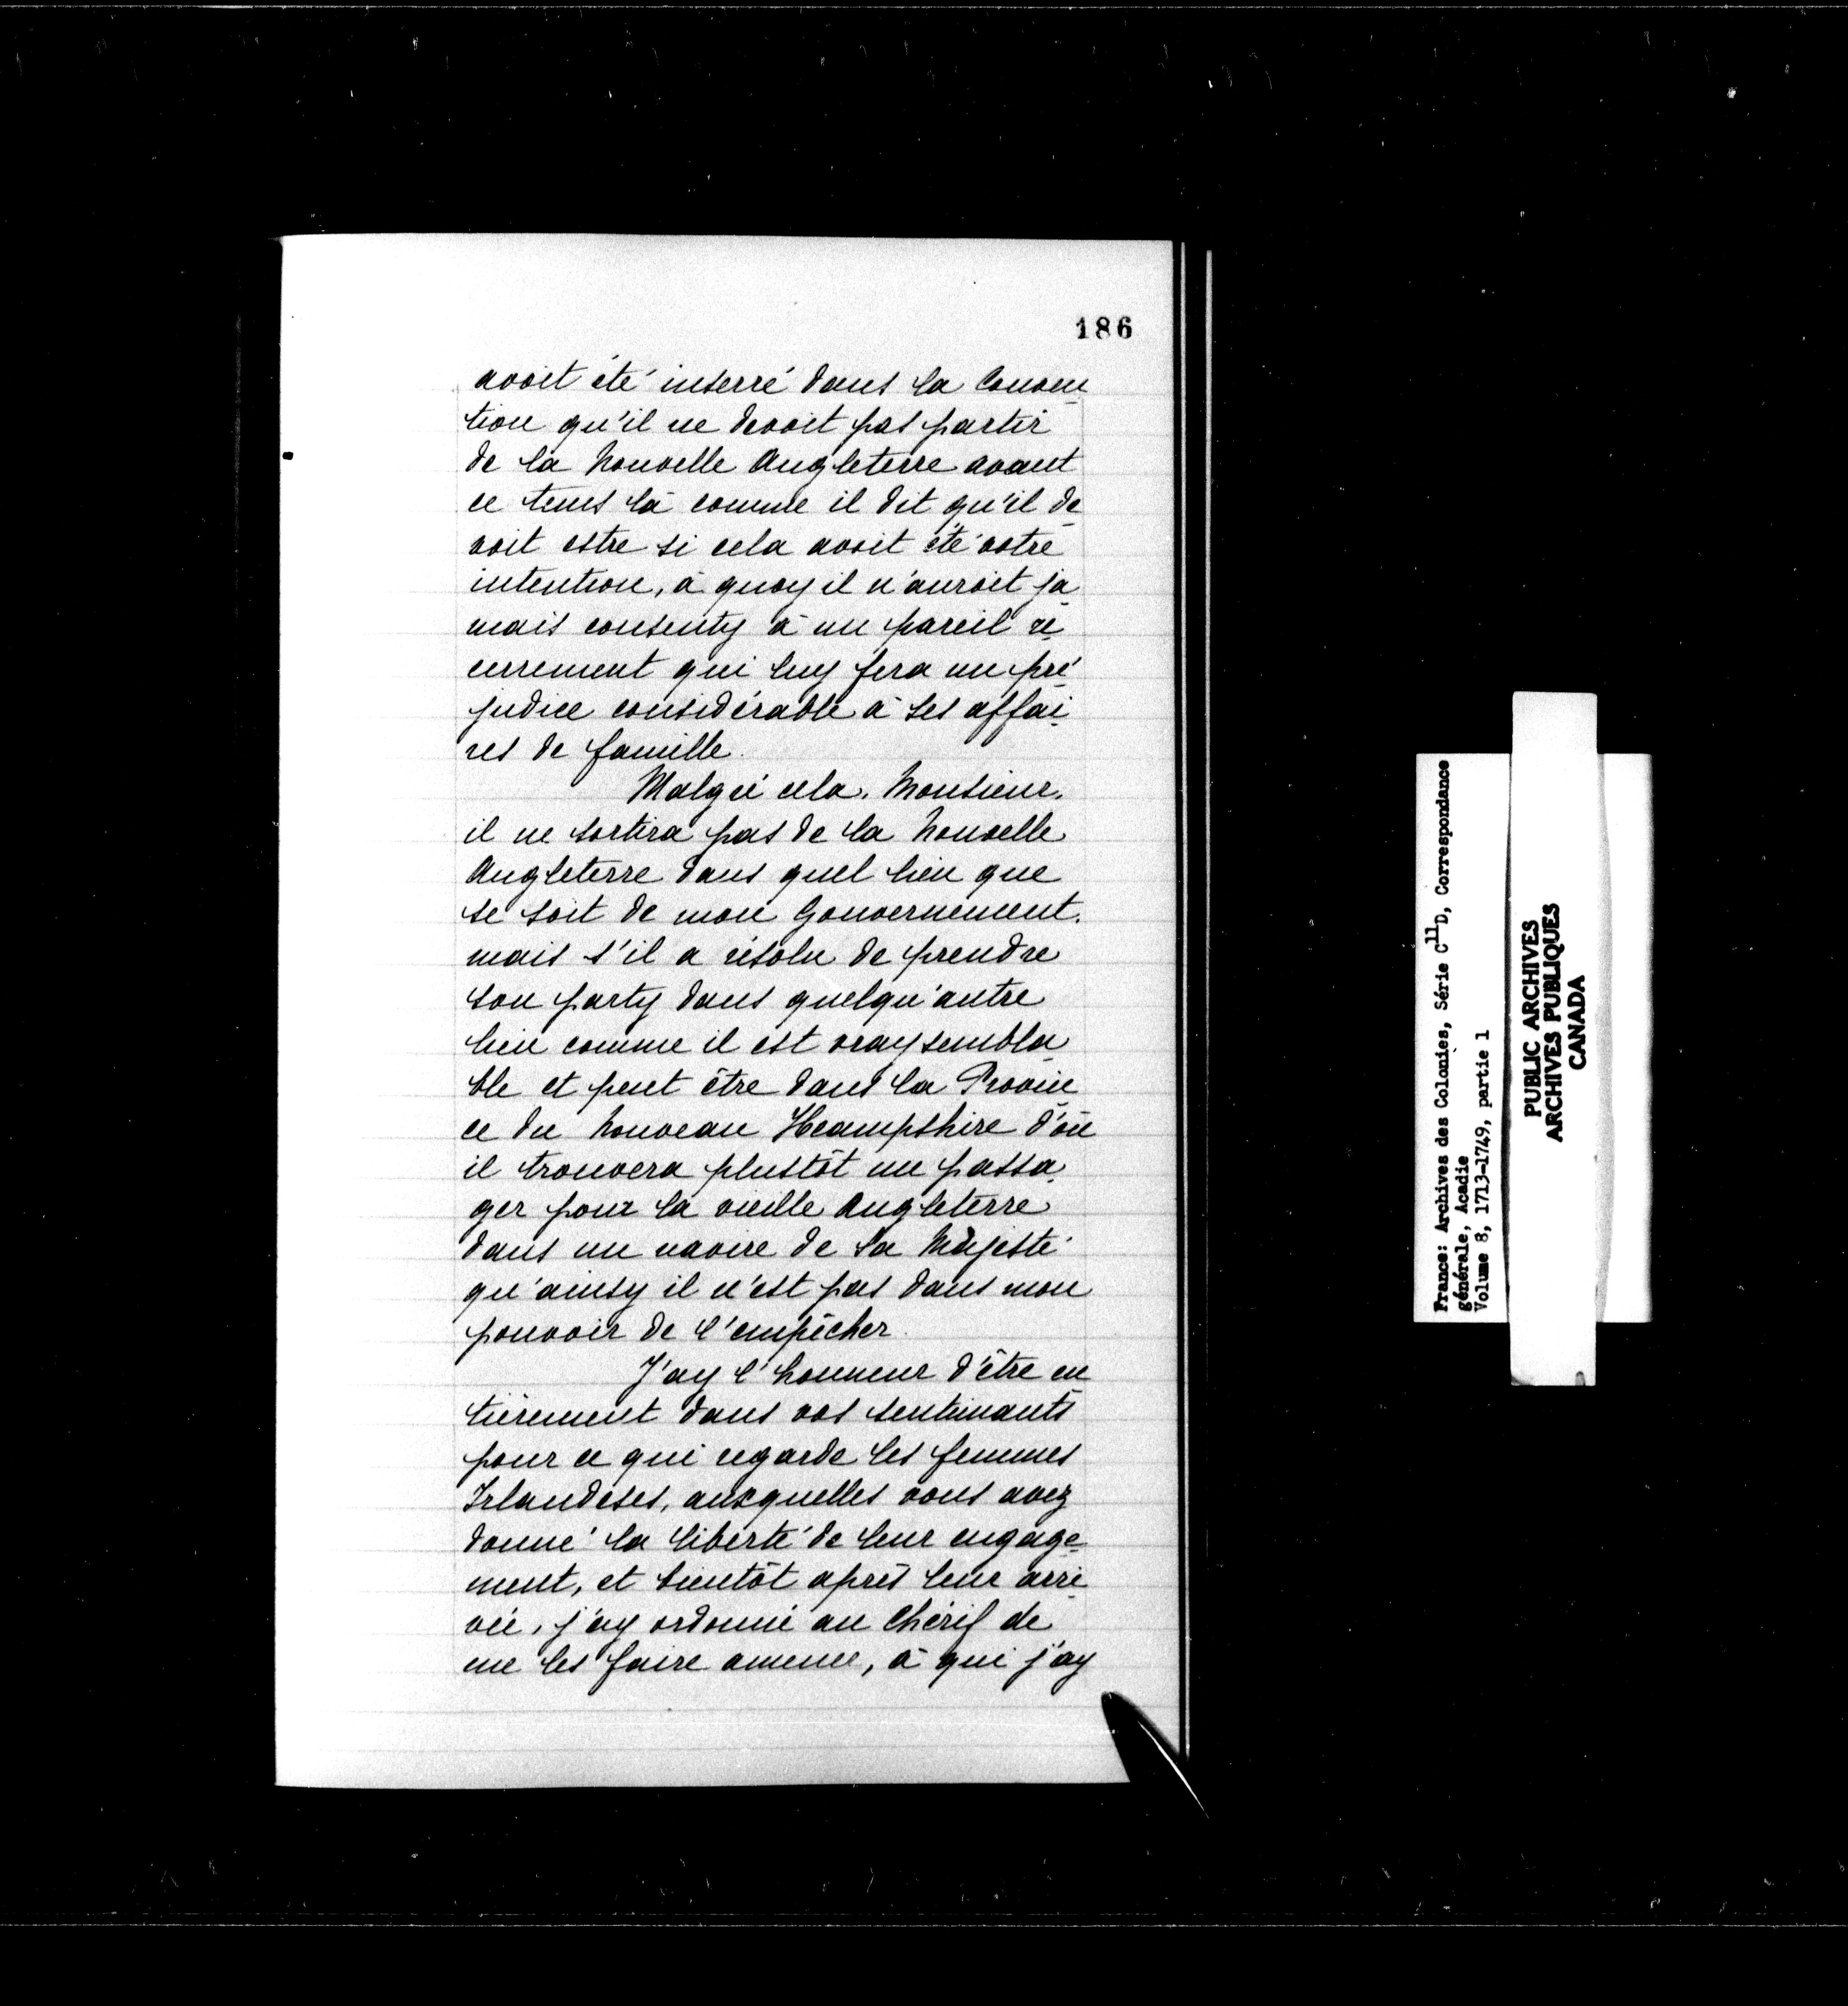 186
avoit été inserré dans la Conven
tion qu'il ne devoit pas partir
de la Nouvelle Angleterre avant
ce tems là comme il dit qu'il de
voit estre si cela avoit été votre
intention, à quoy il n'auroit ja
mais consenty à un pareil ré
cerrement qui luy fera un pré
judice considérable à ses affai
res de famille.
Malgré cela, Monsieur,
il ne sortira pas de la Nouvelle
Angleterre dans quel lieu que
se soit de mon Gouvernement.
mais s'il a résolu de prendre
son party dans quelqu'autre
lieu comme il est vraysembla
ble et peut être dans la Provin
ce du Nouveau Heampshire d'où
il trouvera plustôt un passa
ger pour la vieille Angleterre
dans un navire de Sa Majesté
qu'ainsy il n'est pas dans mon
pouvoir de l'empêcher.
J'ay l'honneur d'être en
tièrement dans vos sentimants
pour ce qui regarde les femmes
Irlandeses, auxquelles vous avez
donné la liberté de leur engage
ment, et bientôt après leur arri
vée, j'ay ordonné au Chérif de
me les faire amener, à qui j'ay
France: Archives des Colonies, Série C11D, Correspondance
générale, Acadie
Volume 8, 1713-1749, partie 1
PUBLIC ARCHIVES
ARCHIVES PUBLIQUES
CANADA